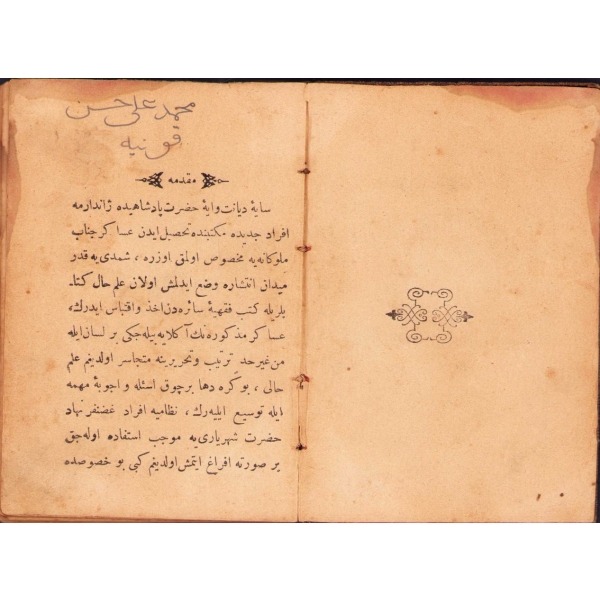 محمد علی حسن
قونیه
مقدمه
سایهٔ دیانت‌وایهٔ حضرت پادشاهیده ژاندارمه
افراد جدیده مکتبنده تحصیل ایدن عساکر جناب
ملوکانه‌یه مخصوص اولمق اوزره ، شمدی‌یه قدر
میدان انتشاره وضع ایدلمش اولان علم حال کتا۔
بلریله کتب فقهیهٔ سائره‌دن اخذ و اقتباس ایدرك،
عساکر مذکوره‌نك آکلایه‌بیله‌جکی بر لسان ایله
من غیر حد ترتیب و تحریرینه متجاسر اولدیغم علم
حالی ، بو کره دها برچوق اسئله و اجوبهٔ مهمه
ایله توسیع ایلیه‌رك ، نظامیه افراد غضنفر نهاد
حضرت شهریاری‌یه موجب استفاده اوله‌جق
بر صورته افراغ ایتمش اولدیغم کبی بو خصوصده